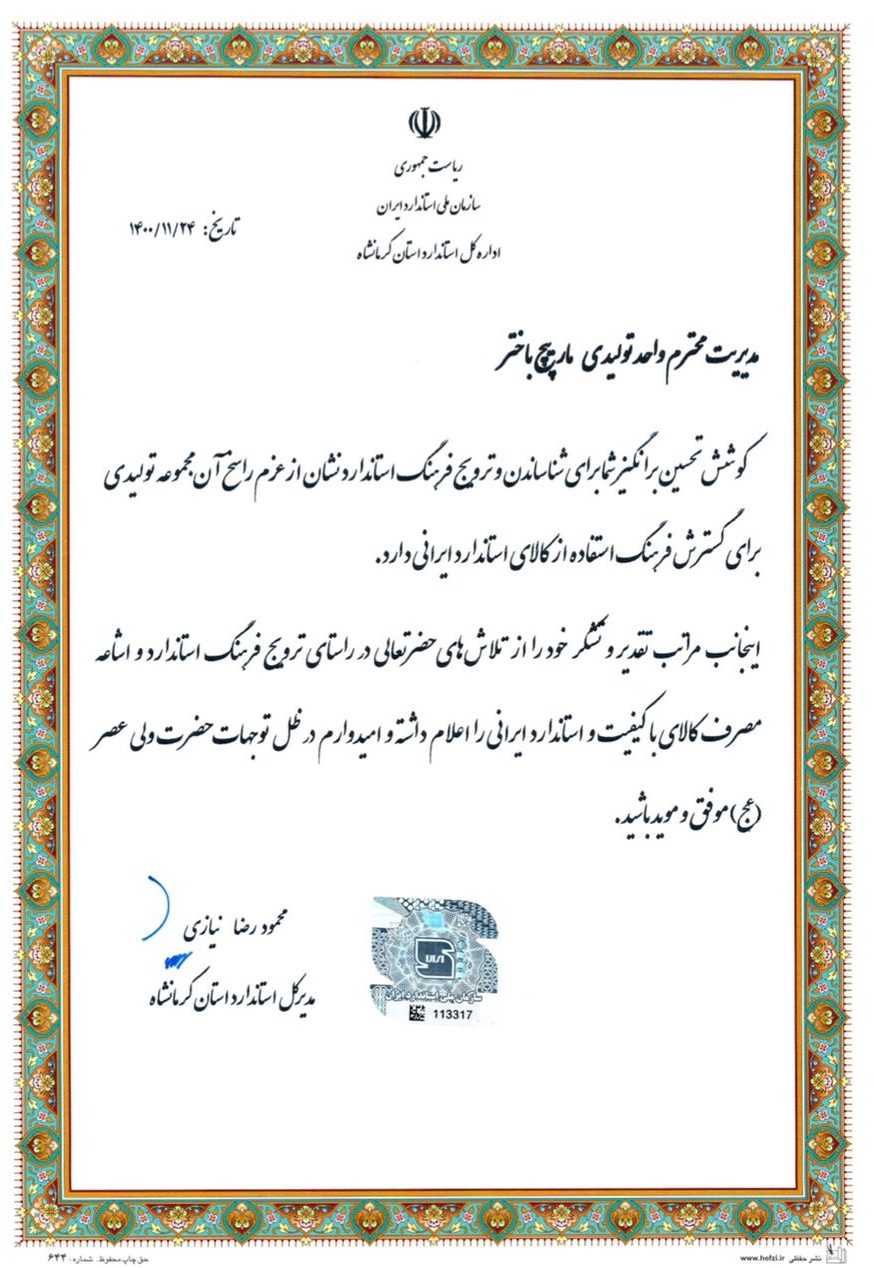 ریاست جمهوری
سازمان ملی استاندارد ایران
تاریخ: ۱۴۰۰/۱۱/۲۴
اداره کل استاندارد استان کرمانشاه
مدیریت محترم واحد تولیدی مارپیچ باختر
کوشش تحسین برانگیز شما برای شناساندن و ترویج فرهنگ استاندارد نشان از عزم راسخ آن مجموعه تولیدی
برای گسترش فرهنگ استفاده از کالای استاندارد ایرانی دارد.
اینجانب مراتب تقدیر و تشکر خود را از تلاش های حضرتعالی در راستای ترویج فرهنگ استاندارد و اشاعه
مصرف کالای با کیفیت و استاندارد ایرانی را اعلام داشته و امیدوارم در ظل توجهات حضرت ولی عصر
(عج) موفق و موید باشید.
محمود رضا نیازی
مدیرکل استاندارد استان کرمانشاه
سازمان ملی استاندارد ایران
113317
نشر حفظی www.hefzi.ir
حق چاپ محفوظ. شماره: ۶۴۴